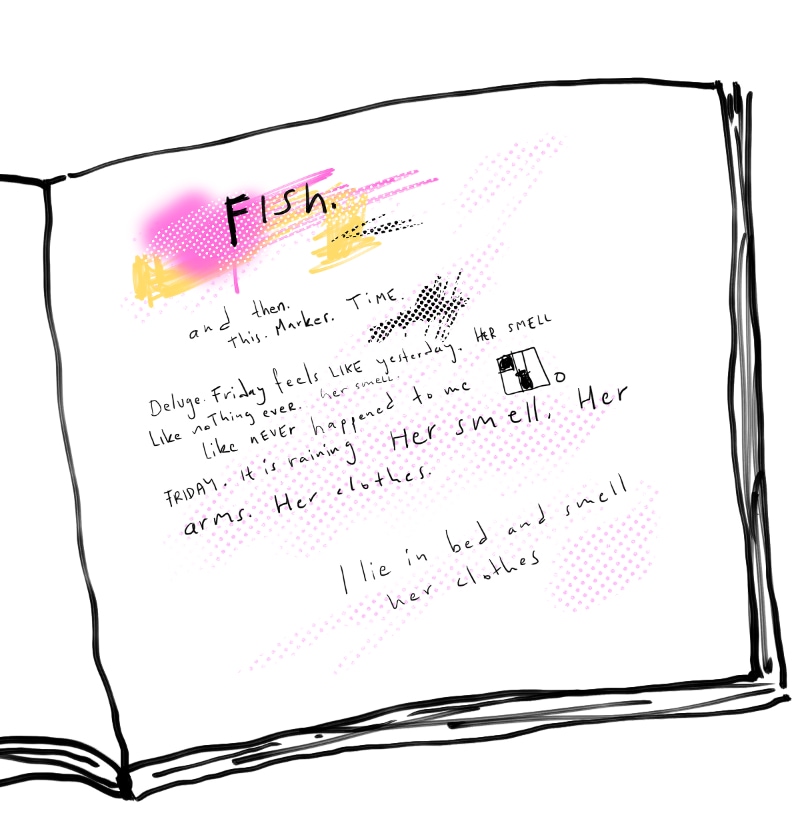 FISh.
and then.
this. Marker. TiME.
Deluge. Friday feels LIKE yesterday. HER SMELL
Like noThing ever. her smell.
like nEVEr happened to me
FRIDAY. It is raining Her smell. Her
arms. Her clothes.
I lie in bed and smell
her clothes